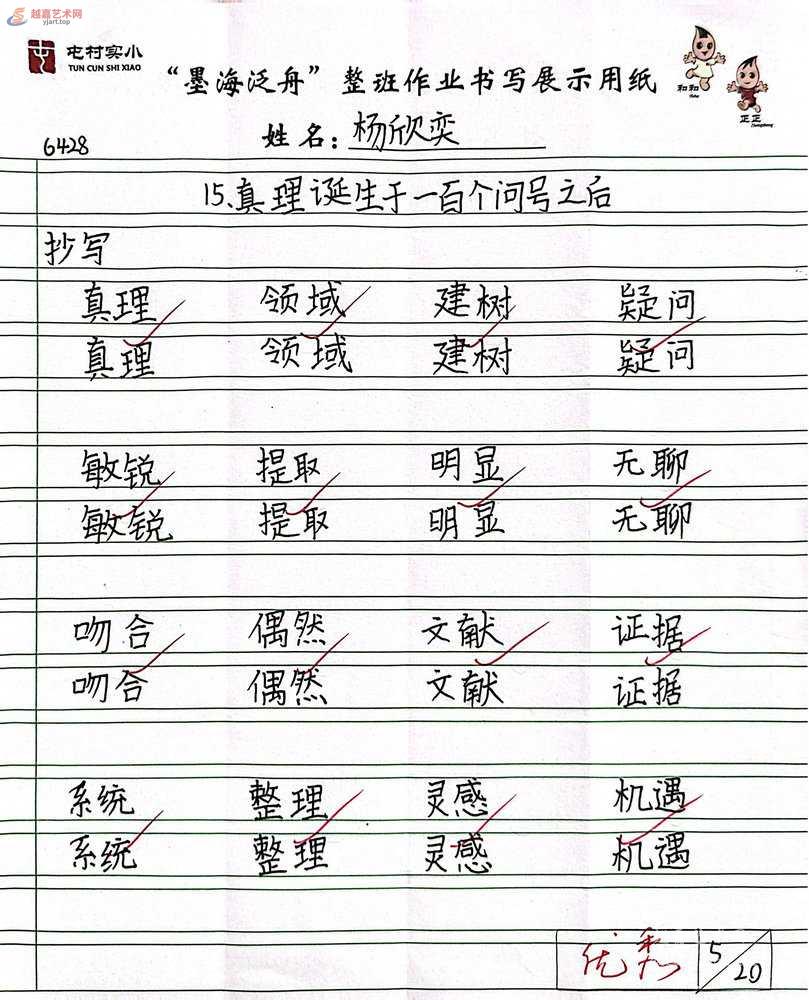 越嘉艺术网
yjart.top
屯村实小
TUN CUN SHI XIAO
“墨海泛舟”整班作业书写展示用纸
和和
Hehe
正正
Zhengzheng
6428
姓名：杨欣奕
15、真理诞生于一百个问号之后
抄写
真理 领域 建树 疑问
真理 领域 建树 疑问
敏锐 提取 明显 无聊
敏锐 提取 明显 无聊
吻合 偶然 文献 证据
吻合 偶然 文献 证据
系统 整理 灵感 机遇
系统 整理 灵感 机遇
优 5/20